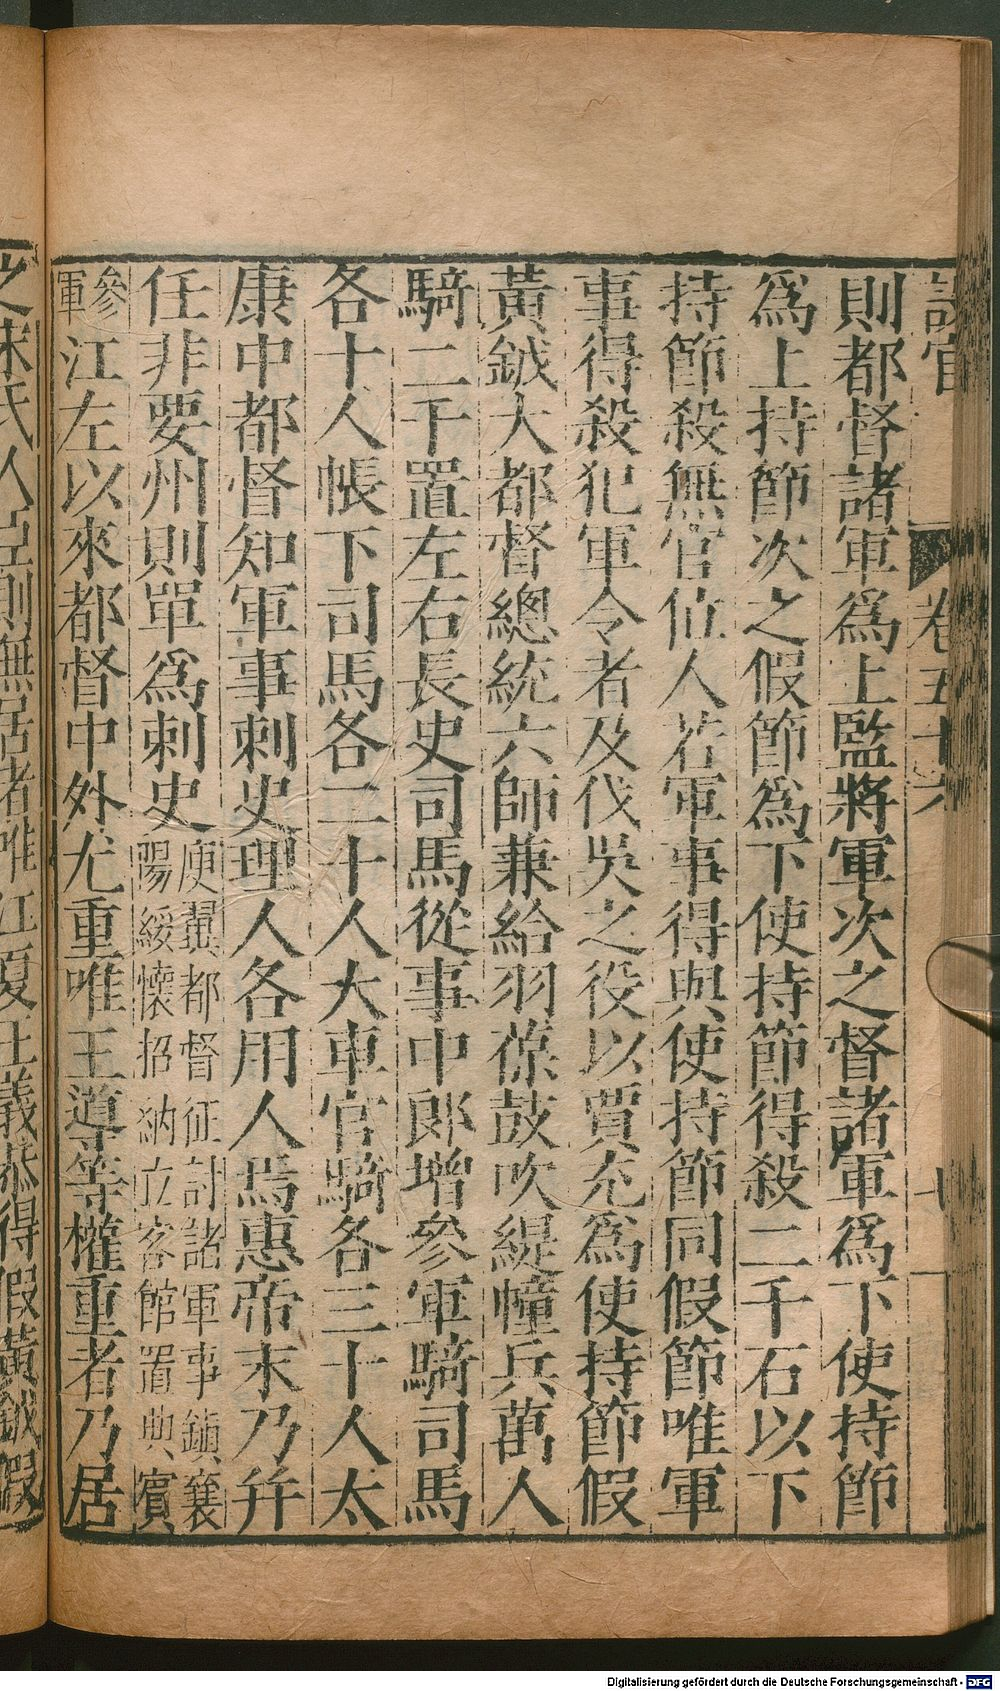 卷五十六
則都督諸軍爲上監將軍次之督諸軍爲下使持節
爲上持節次之假節爲下使持節得殺二千石以下
持節殺無官位人若軍事得與使持節同假節唯軍
事得殺犯軍令者及伐吳之役以賈充爲使持節假
黃鉞大都督總統六師兼給羽葆鼓吹緹幢兵萬人
騎二千置左右長史司馬從事中郎增參軍騎司馬
各十人帳下司馬各二十人大車官騎各三十人太
康中都督知軍事刺史理人各用人焉惠帝末乃幷
任非要州則單爲刺史庾翼都督征討諸軍事鎮襄
陽綏懷招納立客館置典賓
參
軍江左以來都督中外尤重唯王導等權重者乃居
之宋氏人臣則無居者唯江夏王義恭得假黃鉞假
Digitalisierung gefördert durch die Deutsche Forschungsgemeinschaft - DFG